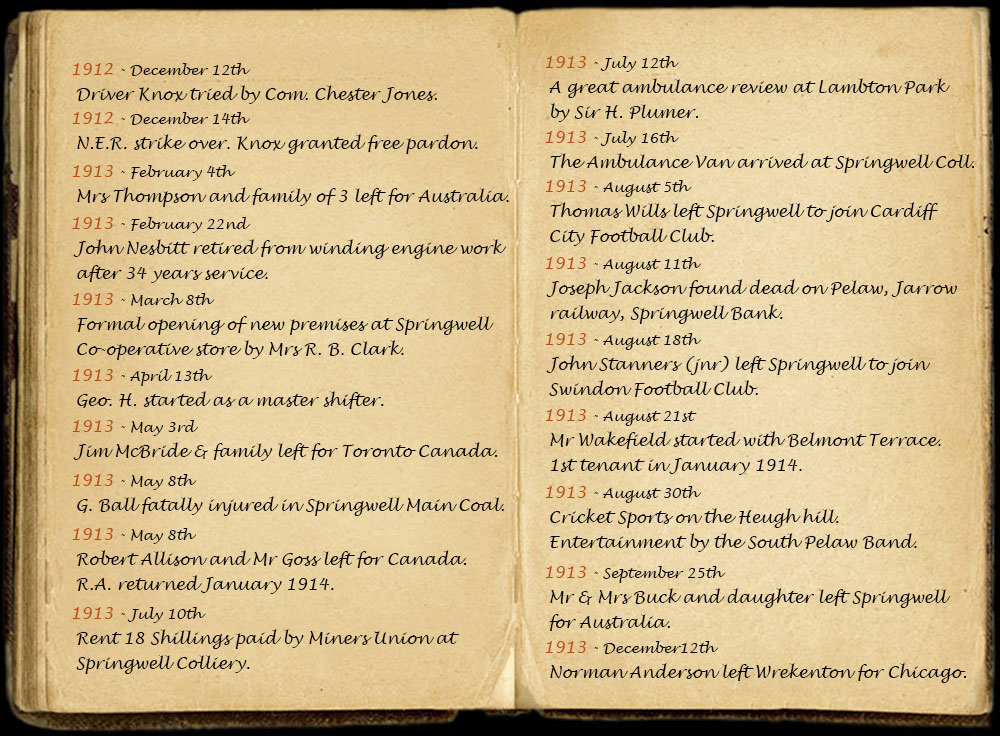 1912 - December 12th
Driver Knox tried by Com. Chester Jones.
1912 - December 14th
N.E.R. strike over. Knox granted free pardon.
1913 - February 4th
Mrs Thompson and family of 3 left for Australia.
1913 - February 22nd
John Nesbitt retired from winding engine work
after 34 years service.
1913 - March 8th
Formal opening of new premises at Springwell
Co-operative store by Mrs R. B. Clark.
1913 - April 13th
Geo. H. started as a master shifter.
1913 - May 3rd
Jim McBride & family left for Toronto Canada.
1913 - May 8th
G. Ball fatally injured in Springwell Main Coal.
1913 - May 8th
Robert Allison and Mr Goss left for Canada.
R.A. returned January 1914.
1913 - July 10th
Rent 18 Shillings paid by Miners Union at
Springwell Colliery.
1913 - July 12th
A great ambulance review at Lambton Park
by Sir H. Plumer.
1913 - July 16th
The Ambulance Van arrived at Springwell Coll.
1913 - August 5th
Thomas Wills left Springwell to join Cardiff
City Football Club.
1913 - August 11th
Joseph Jackson found dead on Pelaw, Jarrow
railway, Springwell Bank.
1913 - August 18th
John Stanners (jnr) left Springwell to join
Swindon Football Club.
1913 - August 21st
Mr Wakefield started with Belmont Terrace.
1st tenant in January 1914.
1913 - August 30th
Cricket Sports on the Heugh hill.
Entertainment by the South Pelaw Band.
1913 - September 25th
Mr & Mrs Buck and daughter left Springwell
for Australia.
1913 - December12th
Norman Anderson left Wrekenton for Chicago.